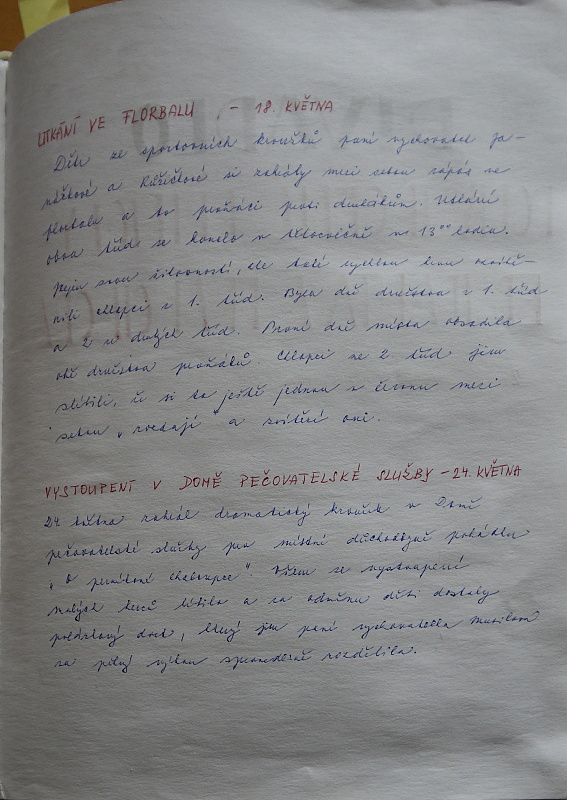 UTKÁNÍ VE FLORBALU - 18. KVĚTNA
Děti ze sportovních kroužků paní vychovatel Ja-
náčkové a Růžičkové si zahrály mezi sebou zápas ve
florbalu a to prvňáci proti druhákům. Utkání
obou tříd se konalo v tělocvičně v 13⁰⁰ hodin.
Nejen svou šikovností, ale také rychlou hrou
chlapci z 1. tříd. Byla dvě družstva z 1. tříd
a 2 z druhých tříd. První dvě místa obsadila
obě družstva prvňáků. Chlapci ze 2. tříd jim
slíbili, že si to ještě jednou v červnu mezi
sebou "rozdají" a zvítězí oni.
VYSTOUPENÍ V DOMĚ PEČOVATELSKÉ SLUŽBY - 24. KVĚTNA
24. května zahrál dramatický kroužek v Domě
pečovatelské služby pro místní důchodkyně pohádku
"O perníkové chaloupce". Všem se vystoupení
malých herců líbilo a za odměnu děti dostaly
pořádný dort, který jim paní vychovatelka Musilová
za pěkný výkon spravedlivě rozdělila.